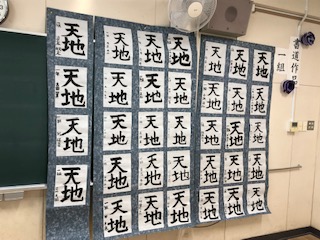 書道作品
一組
天地
天地
天地
天地
天地
天地
天地
天地
天地
天地
天地
天地
天地
天地
天地
天地
天地
天地
天地
天地
天地
天地
天地
天地
天地
天地
天地
天地
天地
天地
天地
天地
天地
天地